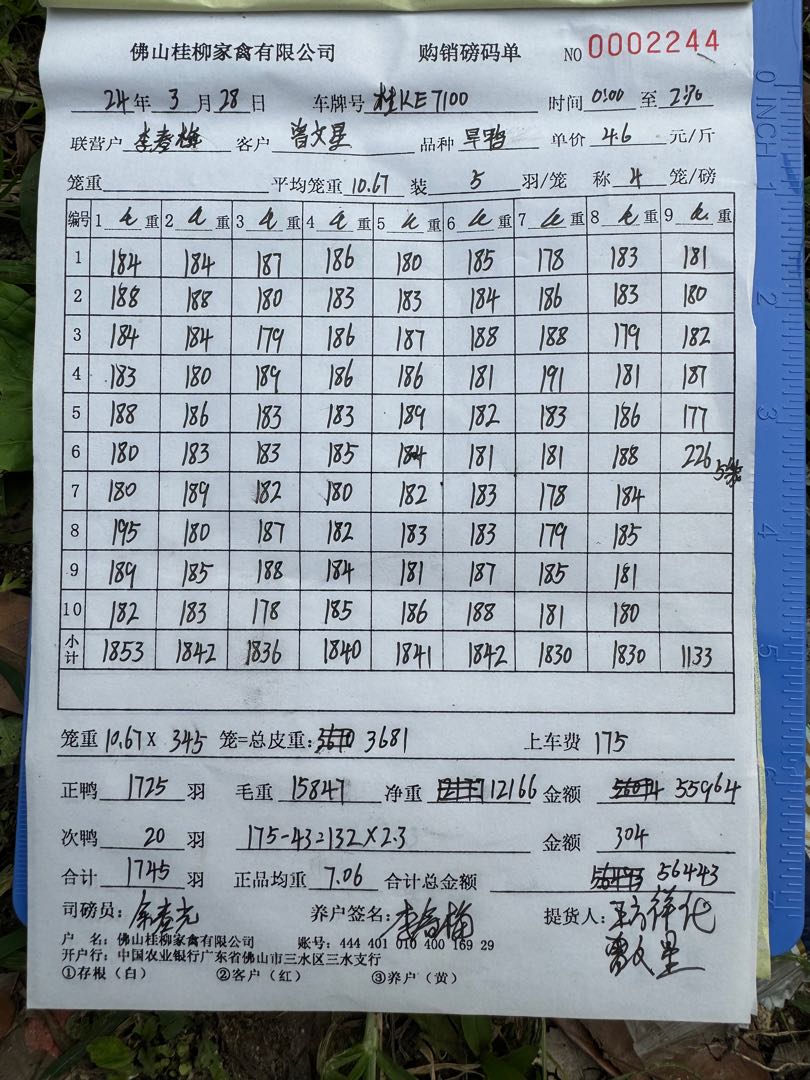 佛山桂柳家禽有限公司 购销磅码单 NO 0002244
24年 3月 28日 车牌号 桂KE7100 时间 0:00 至
联营户 李春梅 客户 曾文星 品种 旱鸭 单价 4.6 元/斤
笼重 平均笼重 10.67 装 5 羽/笼 称 4 笼/磅
编号 1 毛重 2 毛重 3 毛重 4 毛重 5 毛重 6 毛重 7 毛重 8 毛重 9 毛重
1 184 184 187 186 180 185 178 183 181
2 188 188 180 183 183 184 186 183 180
3 184 184 179 186 187 188 188 179 182
4 183 180 189 186 186 181 191 181 187
5 188 186 183 183 189 182 183 186 177
6 180 183 183 185 184 181 181 188 226 5笼
7 180 189 182 180 182 183 178 184
8 195 180 187 182 183 183 179 185
9 189 185 188 184 181 187 185 181
10 182 183 178 185 186 188 181 180
小计 1853 1842 1836 1840 1841 1842 1830 1830 1133
笼重 10.67 X 345 笼=总皮重: 3681 上车费 175
正鸭 1725 羽 毛重 15847 净重 12166 金额 55964
次鸭 20 羽 175-43=132X2.3 金额 304
合计 1745 羽 正品均重 7.06 合计总金额 56443
司磅员: 养户签名: 李春梅 提货人:
曾文星
户 名: 佛山桂柳家禽有限公司 账号: 444 401 010 400 169 29
开户行: 中国农业银行广东省佛山市三水区三水支行
①存根(白) ②客户(红) ③养户(黄)
0 INCH 1 2 3 4 5